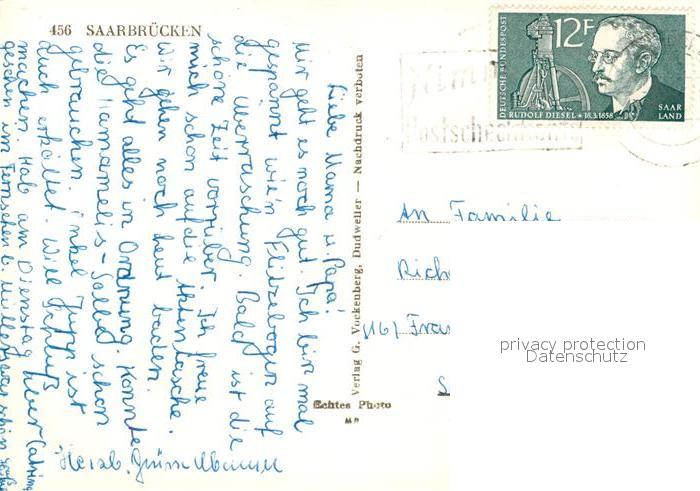 456 SAARBRÜCKEN
Liebe Mama u. Papa!
Mir geht es noch gut. Ich bin mal
gespannt wie'n Flitzebogen auf
die Überraschung. Bald ist die
schöne Zeit vorrüber. Ich freue
mich schon auf die Aktentasche.
Wir gehen noch heut baden.
Es geht alles in Ordnung. Konnte
die Hamamelis-Salbe schon
gebrauchen. Onkel Jupp ist
auch erkältet. Will Schluß
machen. Hab am Dienstag
gesehen im Fernsehen b. schön
Herzl.
Verlag G. Vockenberg, Dudweiler — Nachdruck verboten
Echtes Photo
DEUTSCHE BUNDESPOST
12F
SAAR
LAND
RUDOLF DIESEL * 18.3.1858
Postscheckkonto
An Familie
Rich
(16) Fra
privacy protection
Datenschutz